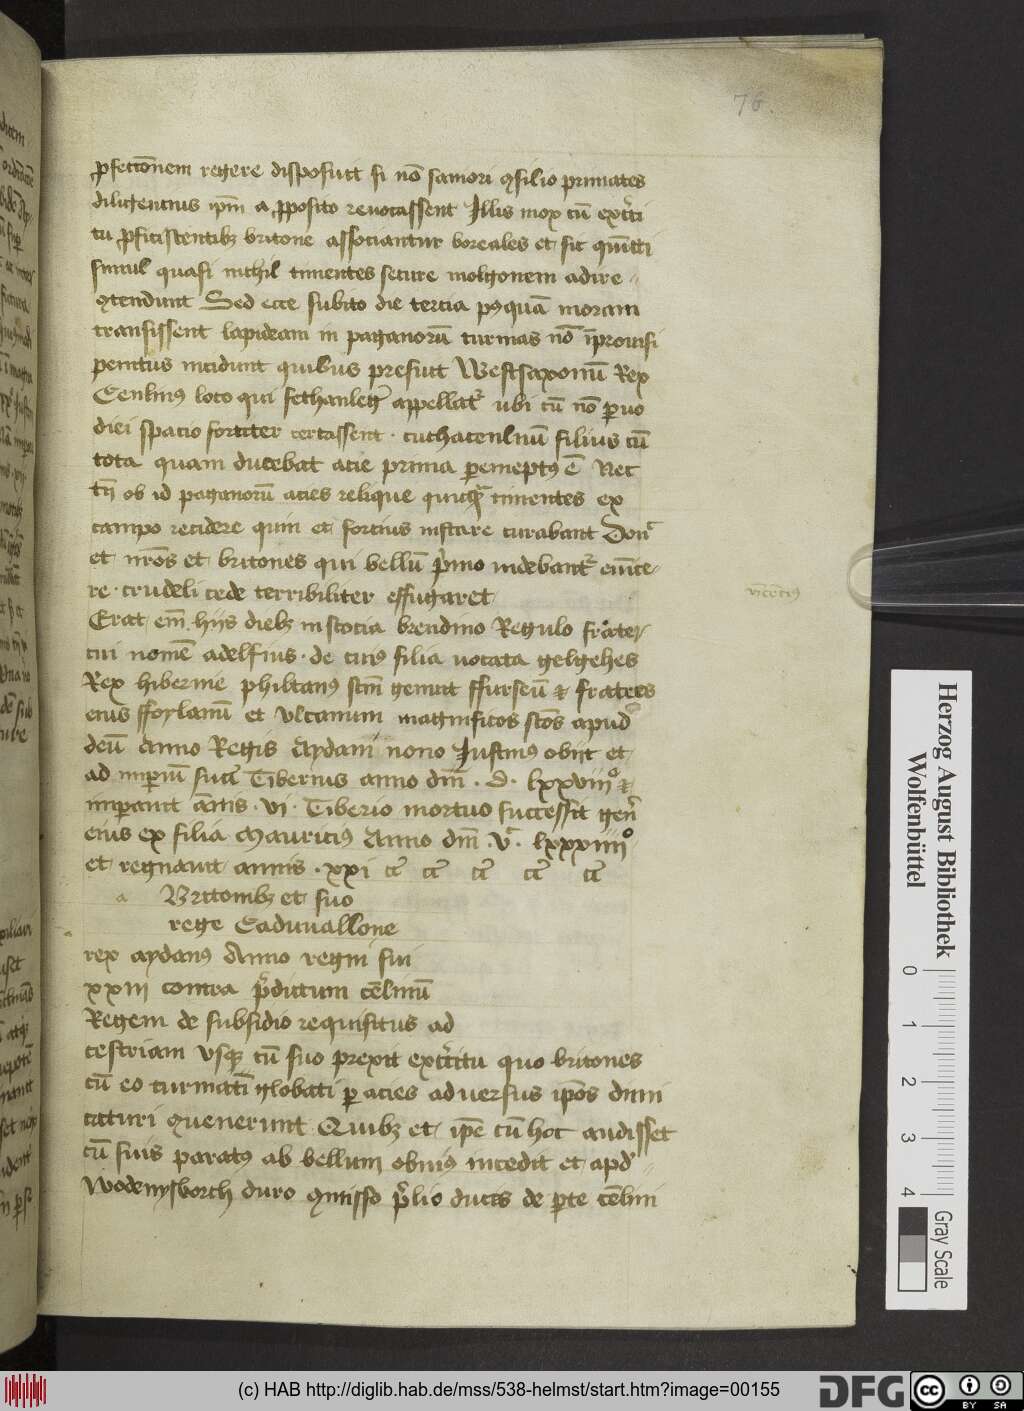 76.
ꝓfectōnem regere disposuit si nō saniori ꝯsilio primates
diligencius ip̄m a ꝓposito reuocassent Illis mox cū exc̄iti
tu ꝓficiscentibꝫ britone associantur boreales et sic
simul quasi nichil timentes secure molgonem adire
ꝯtendunt Sed ecce subito die tercia pꝰquā moram
transissent lapideam in paganorū turmas nō īprouisi
penitus incidunt quibus prefuit Westsaxonū Rex
Cenliniꝰ loco qui fethanleḡ appellat̄ ubi cū nō ꝑuo
diei spacio fortiter certassent · cuthacenlinū filius cū
tota quam ducebat acie prima ꝑemeptꝰ ē Nec
tn̄ ob id paganorū acies relique timentes ex
campo recidere quin et forcius instare curabant Don̄
et nr̄os et britones qui bellū p̄mo uidebant̄ euīce
re · crudeli cede terribiliter effugaret
Erat em̄ hijs diebꝫ in scocia brendino Regulo frater
cui nomē adelfius · de cuiꝰ filia uocata gelgehes
Rex hibernie philtanꝰ sc̄m genuit ffurseū ⁊ fratres
eius ffoylanū et vltanum magnificos sc̄os apud
deū Anno Regis Aydani nono Iustinꝰ obijt et
ad imperiū Tiberius anno dm̄ · D · lxxviijº ⁊
imperauit an̄is · vi · Tiberio mortuo successit gen̄
eius ex filia Mauriciꝰ Anno dm̄ · vᶜ · lxxxiiijº
et regnauit annis · xxi cͤ cͤ cͤ cͤ cͤ
a Britonibꝫ et suo
rege Caduuallone
rex aydanꝰ Anno regni sui
xxiij contra p̄dictum cēlinū
Regem de subsidio requisitus ad
cestriam vsqꝫ cū suo prexit exc̄itu quo britones
cū eo turmatī globati ꝑ acies aduersus ip̄os dimi
caturi ꝯuenerunt Quibꝫ et ip̄e cū hoc audisset
cū suis paratꝰ ab bellum obuiꝰ incedit et apd̄
Wodenysborth duro ꝯmisso p̄lio ducis de ꝑte cēlini
Herzog August Bibliothek
Wolfenbüttel
0 1 2 3 4
Gray Scale
(c) HAB http://diglib.hab.de/mss/538-helmst/start.htm?image=00155
DFG
cc BY SA